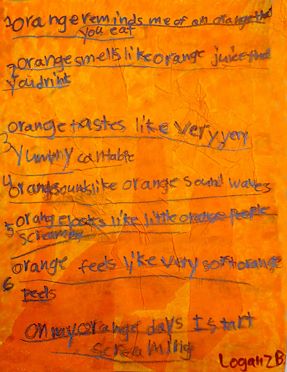 1 orange reminds me of an orange that
you eat
2 orange smells like orange juice that
you drink
orange tastes like very very
3 yummy
4 orange sounds like orange sound waves
5 orange looks like little orange people
screaming
orange feels like very soft orange
6 peels
on my orange days I start
screaming
Logan ZB